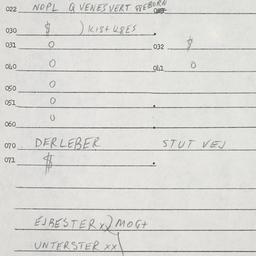 022 NOPL Q VENESVERT
030 $ ) KIST USES
031 0 032 $
040 0 041 0
050 0
051 0
060 0
070 DERLEBER STUT VEJ
071 $
EJBESTER x2 MOGT
UNTERSTER XX